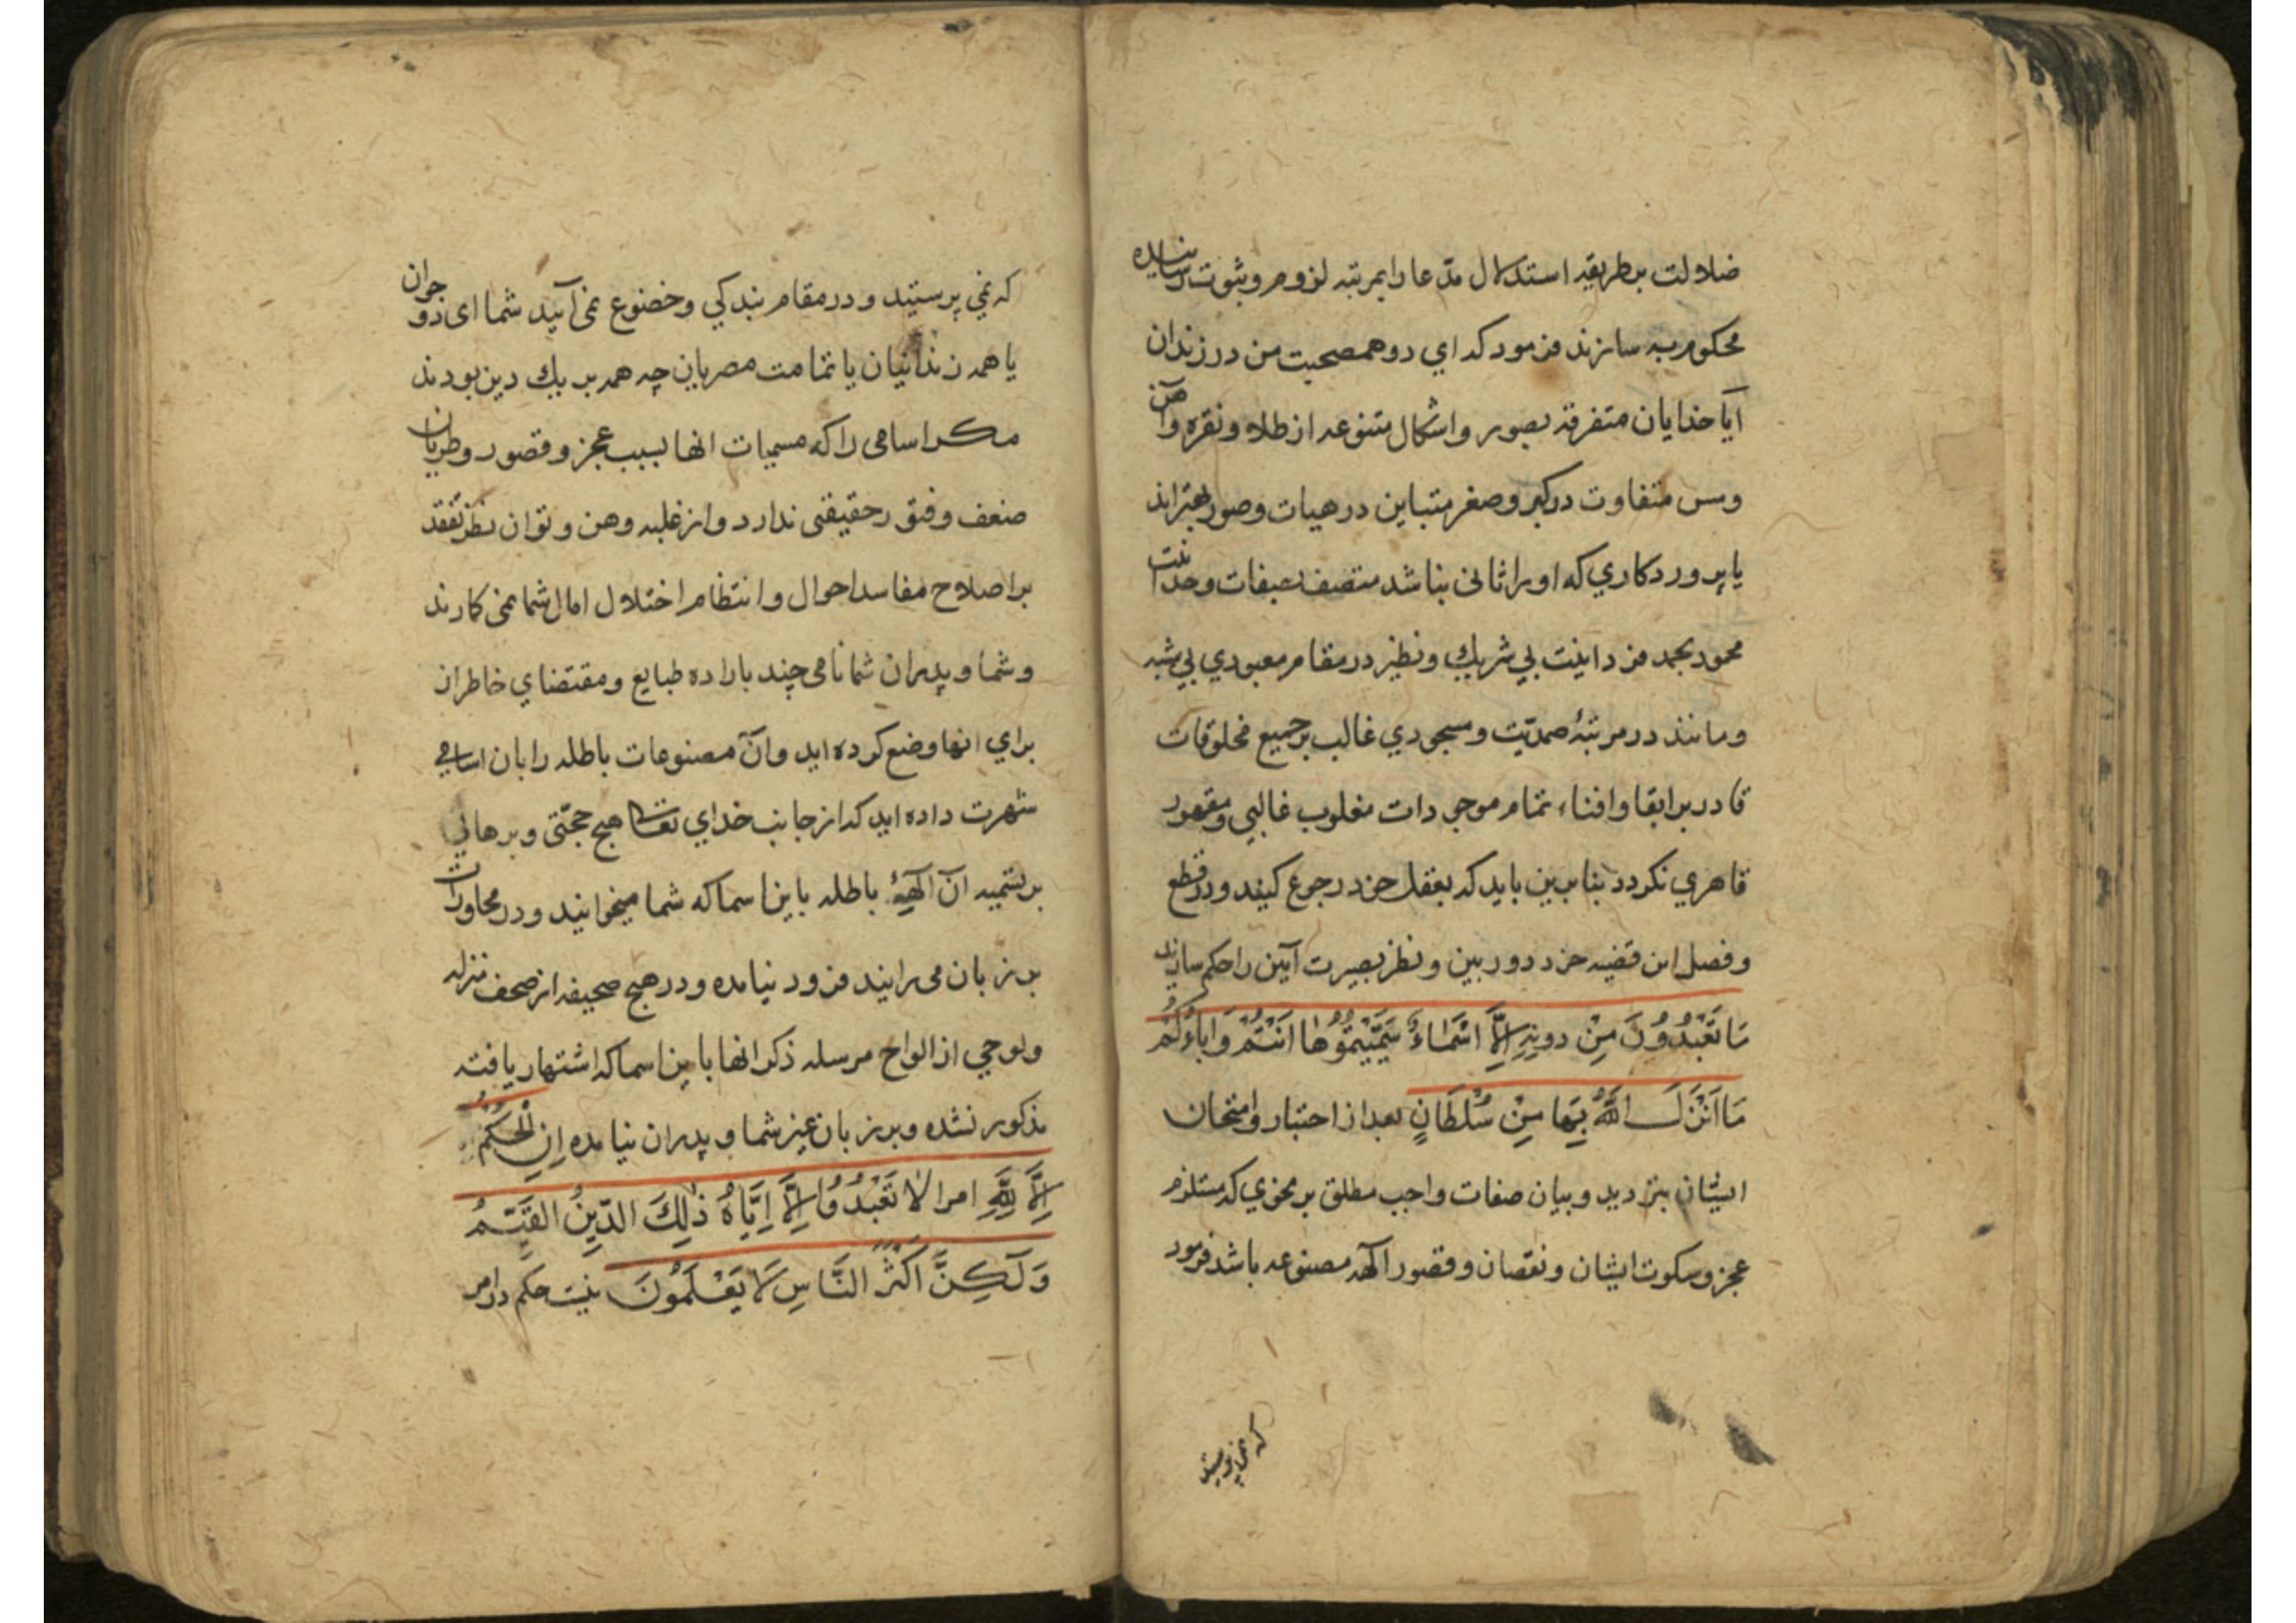 ضلالت بطریقه استدلال مدّعا رابمرتبه لزوم و ثبوت رسانیده
محکوم به سازند فرمود که ای دو همصحبت من در زندان
آیا خدایان متفرقه بصور و اشکال متنوعه از طلا و نقره و آهن
ومس متفاوت در کبر و صغر متباین در هیات وصور بهتراند
یا پروردکاري که اورا ثانی نباشد متصف بصفات وحدانیت
محمود بحمد فردانیت بي شریك ونظیر در مقام معبودي بي شبه
ومانند در مرتبهٔ صمدیّت ومسجودي غالب بر جمیع مخلوقات
قادر بر ابقا وافناء تمام موجودات مغلوب غالبي ومقهور
قاهري نکردد بنابرین باید که بعقل خود رجوع کنید ودر قطع
وفصل این قضیه خرد دوربین ونظر بصیرت آیین را حکم سازند
مَا تَعْبُدُونَ مِنْ دونِهِ اِلَّا اَسْمَاءً سَمَّیْتُمُوُهَا اَنْتُمْ وَاٰبَاؤُکُمْ
مَا اَنْزَلَ اللّٰهُ بِهَا مِنْ سُلْطَانٍ بعد از اختبار وامتحان
ایشان بتردید و بیان صفات واجب مطلق بر نحوي که مستلزم
عجز وسکوت ایشان ونقصان وقصور آلهه مصنوعه باشد فرمود
که نمی پرستید
که نمي پرستید و در مقام بندکي وخضوع نمی آیید شما ای دو جوان
یا همه زندانیان یا تمامت مصریان چه همه بر یك دین بودند
مکر اسامی را که مسمیات انها بسبب عجز و قصور وطریان
ضعف وفتور حقیقتی ندارد واز غلبه وهن وتوان نظر تفقد
بر اصلاح مفاسد احوال وانتظام اختلال امال شما نمی کارند
وشما وپدران شما نامی چند باراده طبایع ومقتضاي خاطران
براي انها وضع کرده اید وآن مصنوعات باطله را بان اسامي
شهرت داده اید که از جانب خداي تعالی هیچ حجّتی وبرهاني
بر تسمیه آن آلههٔ باطله باین اسما که شما میخوانید ودر محاورات
بر زبان می رانید فرود نیامده ودر هیچ صحیفه از صحف منزله
ولوحي از الواح مرسله ذکر انها باین اسما که اشتهار یافته
مذکور نشده وبر زبان غیر شما و پدران نیامده اِنِ الْحُکْمُ
اِلَّا لِلّٰهِ امر الَّا تَعْبُدُوُا اِلَّا اِیَّاهُ ذٰلِكَ الدّیِنُ القَیِّمُ
وَلٰکِنَّ اَکْثَرَ النَّاسِ لَا یَعْلَمُونَ نیست حکم در امر